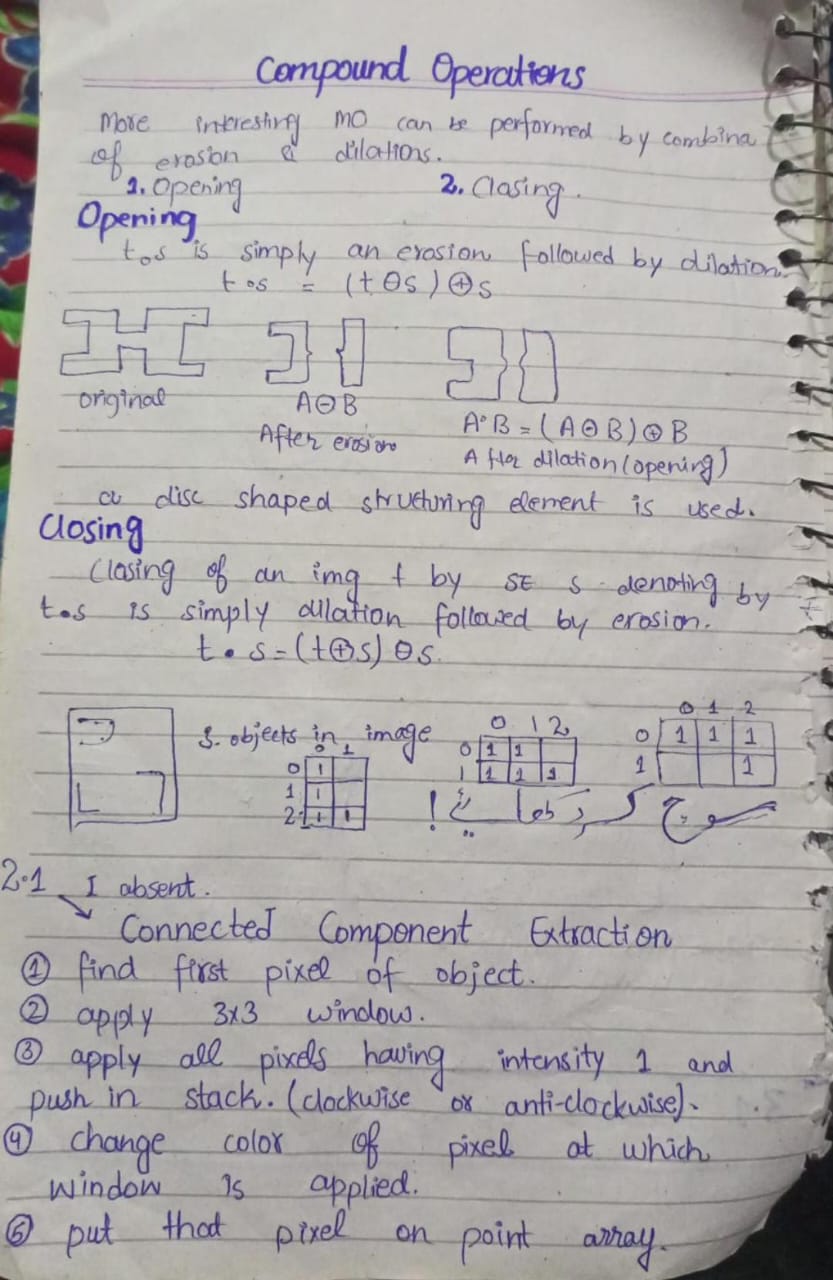 Compound Operations
More interesting MO can be performed by combina
of erosion & dilations.
1. Opening 2. Closing.
Opening
t∘s is simply an erosion followed by dilation.
t∘s = (t⊖s)⊕s
original
A⊖B
After erosion
A∘B = (A⊖B)⊕B
After dilation (opening)
a disc shaped structuring element is used.
Closing
Closing of an img f by SE s denoting by
t•s is simply dilation followed by erosion.
t•s = (t⊕s)⊖s.
3. objects in image
0 1
0 1
1 1
2 1 1
0 1 2
0 1 1
1 1 1 1
0 1 2
0 1 1 1
1 1
سوچ کر
2.1 I absent.
Connected Component Extraction
① find first pixel of object.
② apply 3x3 window.
③ apply all pixels having intensity 1 and
push in stack. (clockwise or anti-clockwise).
④ change color of pixel at which
window is applied.
⑤ put that pixel on point array.